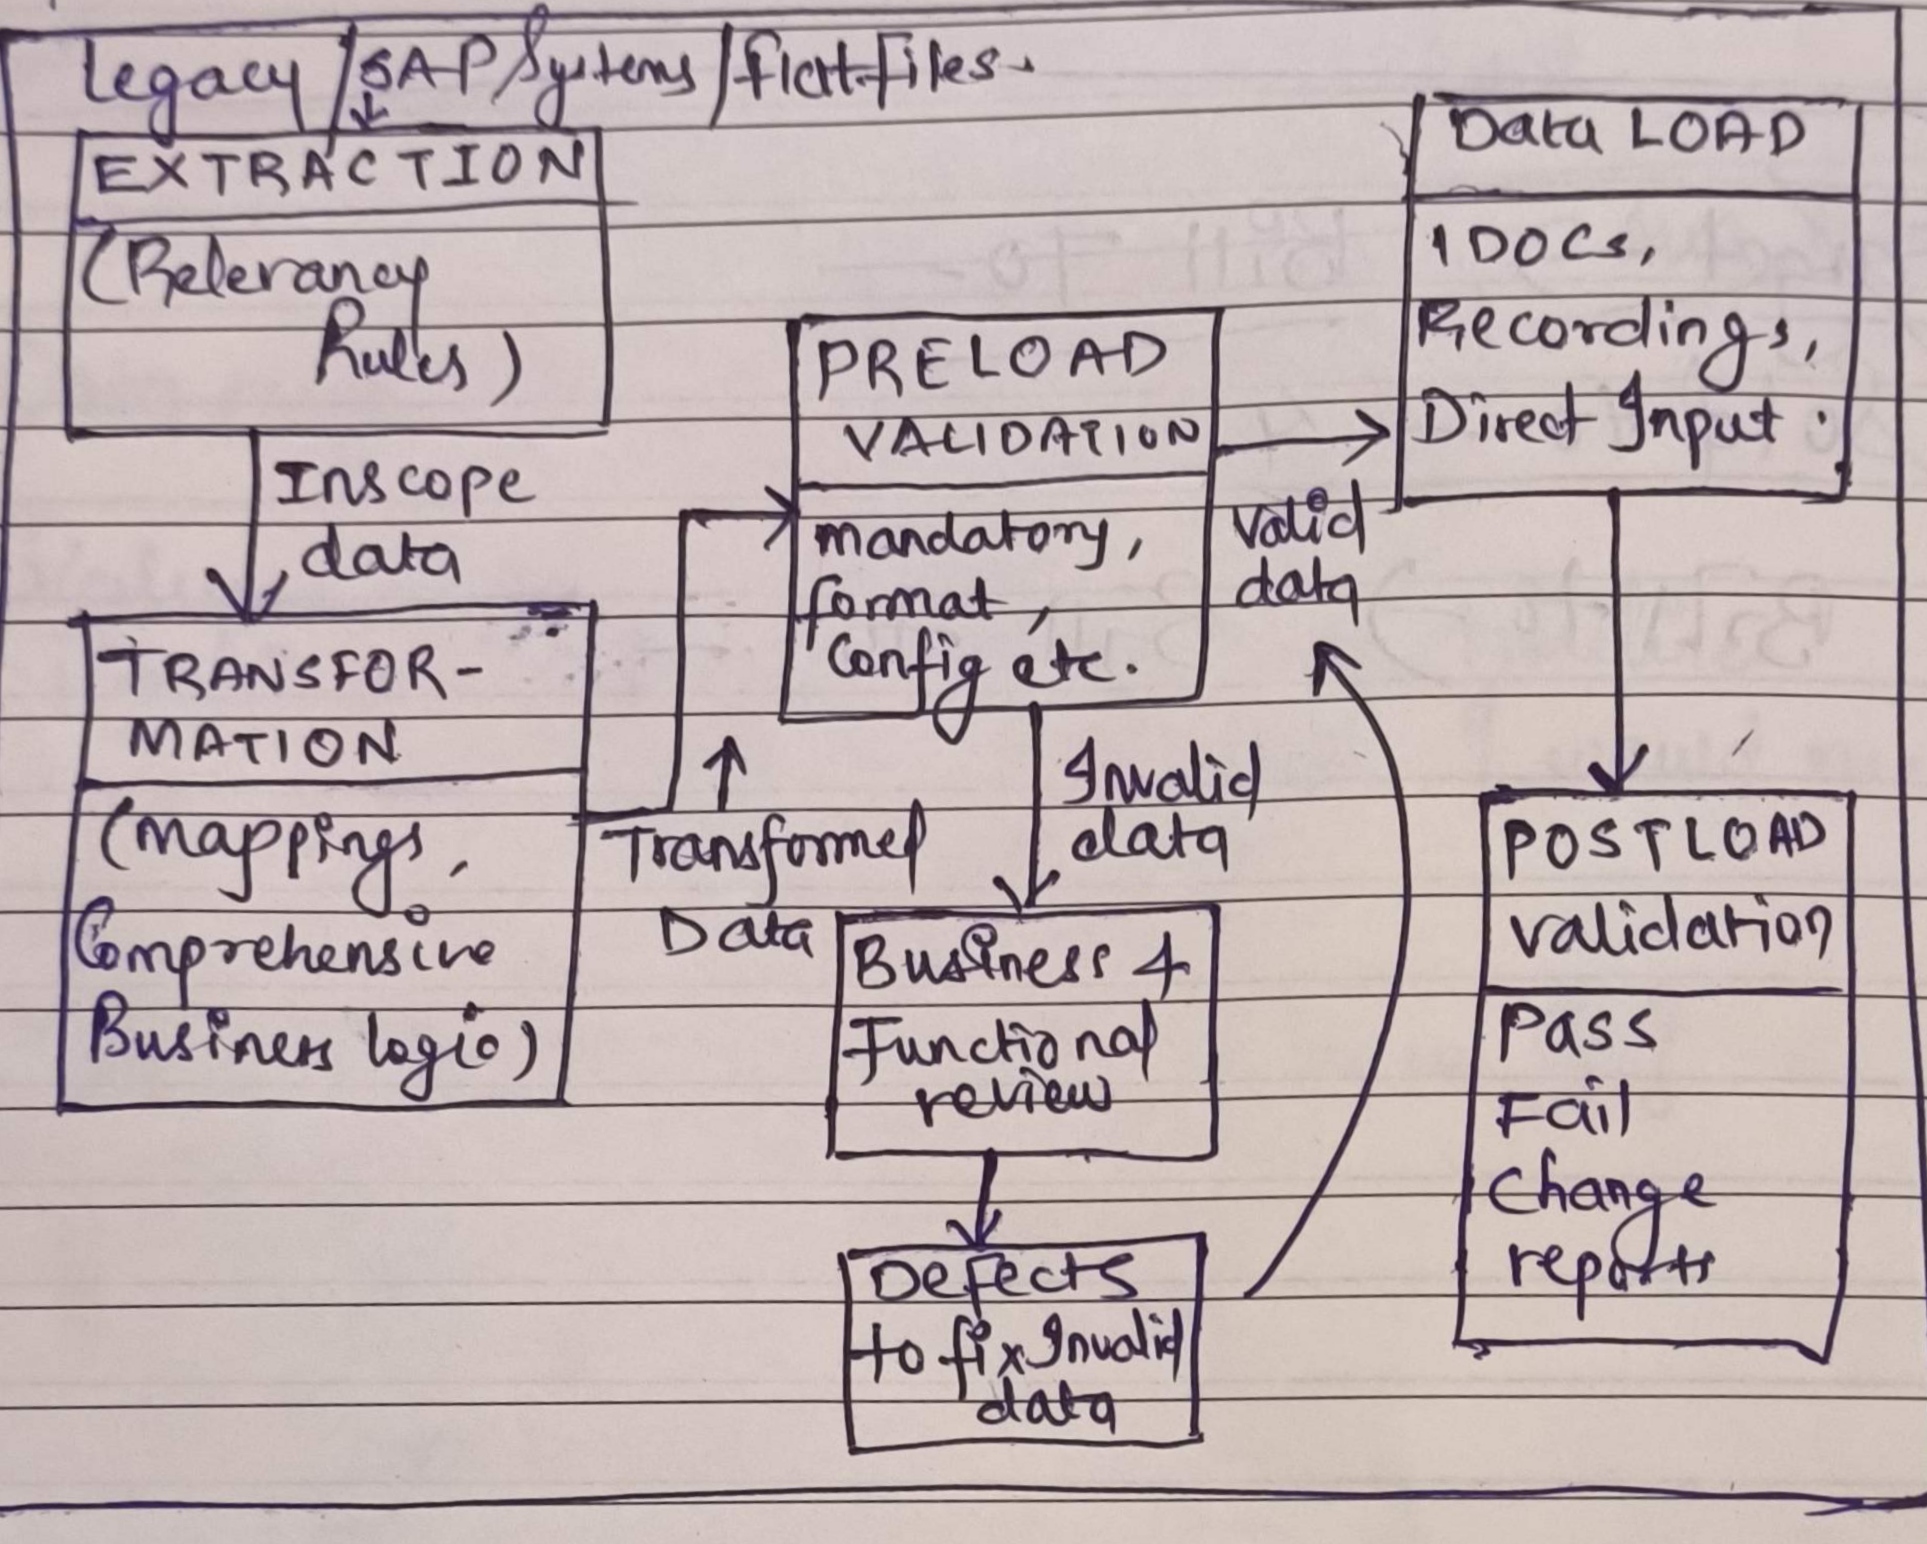 Legacy / SAP Systems / flat files.
EXTRACTION
(Relevancy
Rules)
Inscope
data
TRANSFOR-
MATION
(Mappings,
Comprehensive
Business logic)
Transformed
Data
PRELOAD
VALIDATION
mandatory,
format,
Config etc.
Invalid
data
Business &
Functional
review
Defects
to fix Invalid
data
Valid
data
Data LOAD
IDOCs,
Recordings,
Direct Input.
POSTLOAD
validation
Pass
Fail
Change
reports